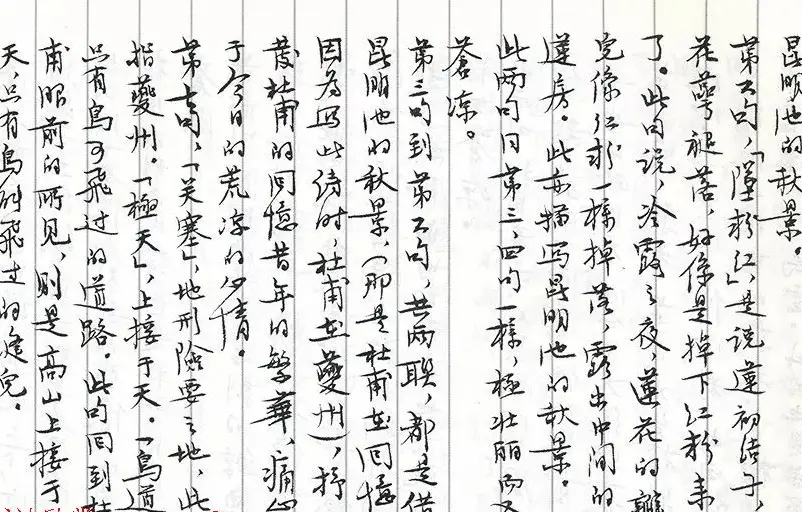 昆明池的秋景
第六句,「墜粉红」,是说蓮初结子,
花萼褪落,好像是掉下红粉来
了。此句说,冷露之夜,蓮花的瓣
完像红粉一樣掉落,露出中间的
蓮房。此亦描写昆明池的秋景。
此两句同第三、四句一樣,極壮丽而又
蒼凉。
第三句到第六句,共两联,都是借
昆明池的秋景,(那是杜甫在回憶
因为写此诗时,杜甫在夔州),抒
发杜甫的回憶昔年的繁華,痛心
于今日的荒凉的心情。
第七句,「关塞」,地形險要之地,此
指夔州。「極天」,上接于天。「鳥道
只有鳥可飛过的道路。此句回到杜
甫眼前的所见,则是高山上接于
天,只有鳥能飛过的